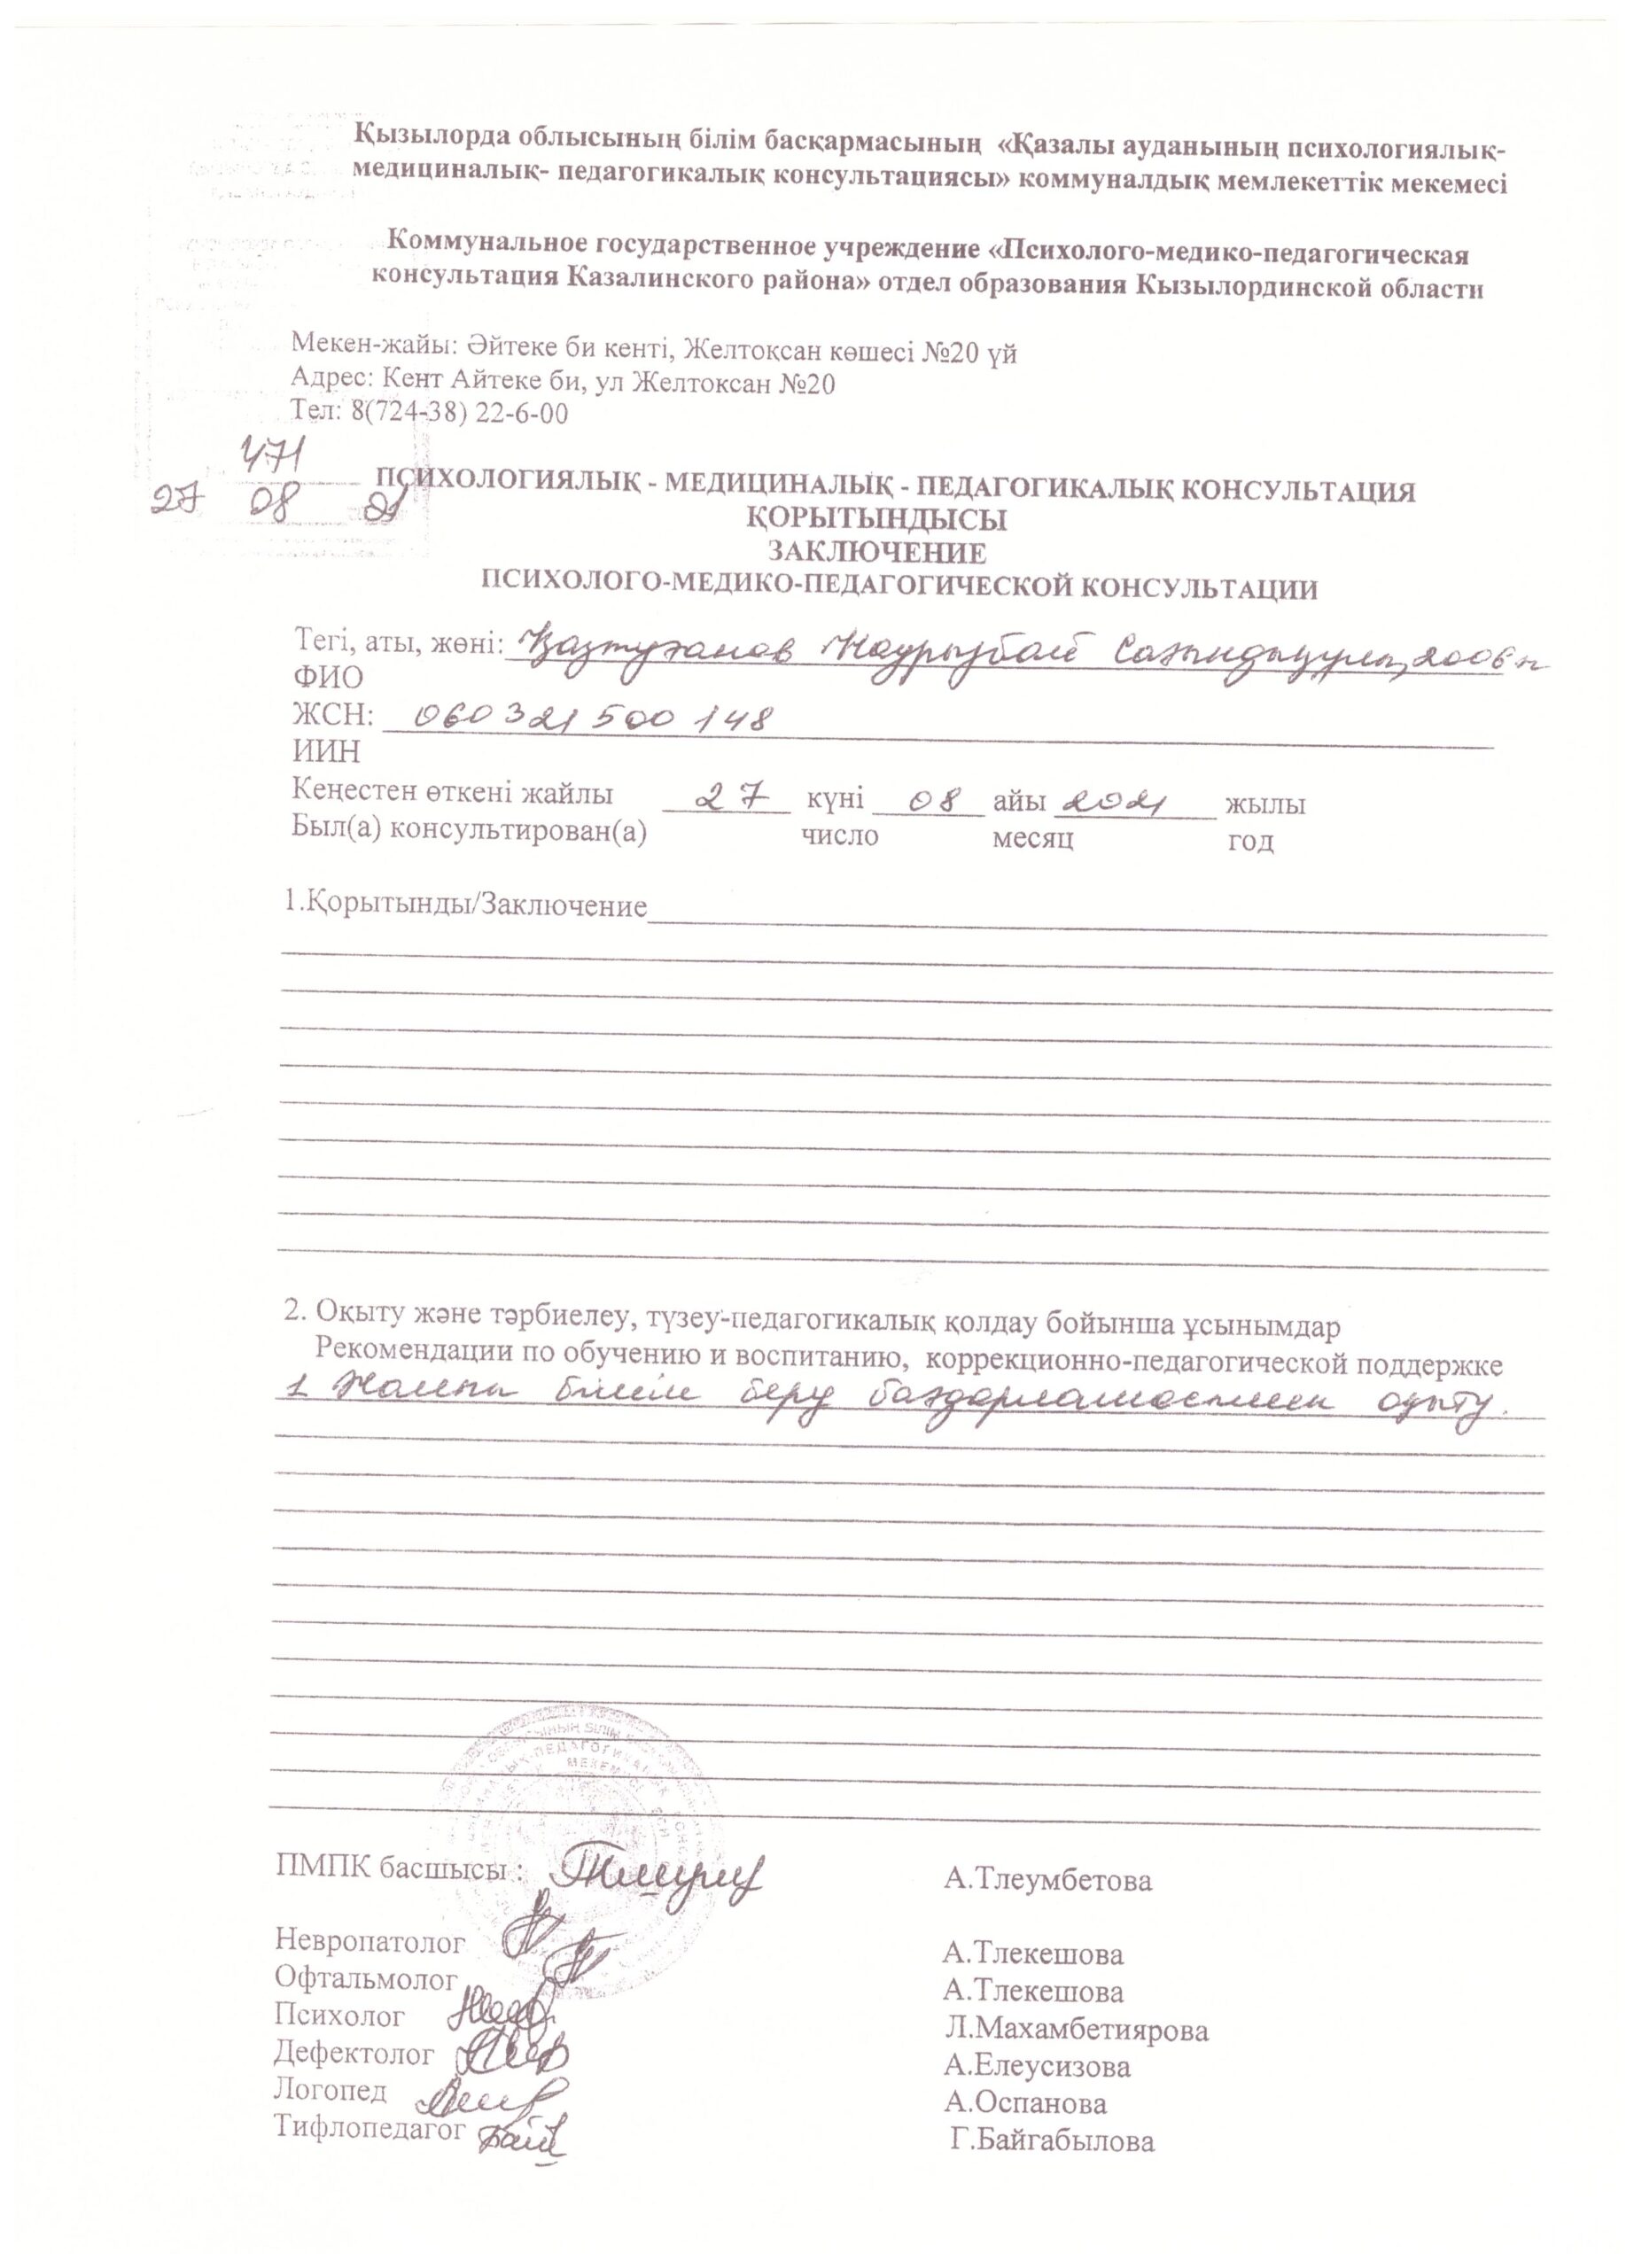 Қызылорда облысының білім басқармасының «Қазалы ауданының психологиялық-
медициналық- педагогикалық консультациясы» коммуналдық мемлекеттік мекемесі
Коммунальное государственное учреждение «Психолого-медико-педагогическая
консультация Казалинского района» отдел образования Кызылординской области
Мекен-жайы: Әйтеке би кенті, Желтоқсан көшесі №20 үй
Адрес: Кент Айтеке би, ул Желтоксан №20
Тел: 8(724-38) 22-6-00
471
27 08 21
ПСИХОЛОГИЯЛЫҚ - МЕДИЦИНАЛЫҚ - ПЕДАГОГИКАЛЫҚ КОНСУЛЬТАЦИЯ
ҚОРЫТЫНДЫСЫ
ЗАКЛЮЧЕНИЕ
ПСИХОЛОГО-МЕДИКО-ПЕДАГОГИЧЕСКОЙ КОНСУЛЬТАЦИИ
Тегі, аты, жөні: Қазтуғанов Наурызбай Сағындықұлы, 2006 ж
ФИО
ЖСН: 060321500148
ИИН
Кеңестен өткені жайлы 27 күні 08 айы 2021 жылы
Был(а) консультирован(а) число месяц год
1.Қорытынды/Заключение
2. Оқыту және тәрбиелеу, түзеу-педагогикалық қолдау бойынша ұсынымдар
Рекомендации по обучению и воспитанию, коррекционно-педагогической поддержке
1 Жалпы білім беру бағдарламасымен оқыту.
ПМПК басшысы : А.Тлеумбетова
Невропатолог А.Тлекешова
Офтальмолог А.Тлекешова
Психолог Л.Махамбетиярова
Дефектолог А.Елеусизова
Логопед А.Оспанова
Тифлопедагог Г.Байгабылова